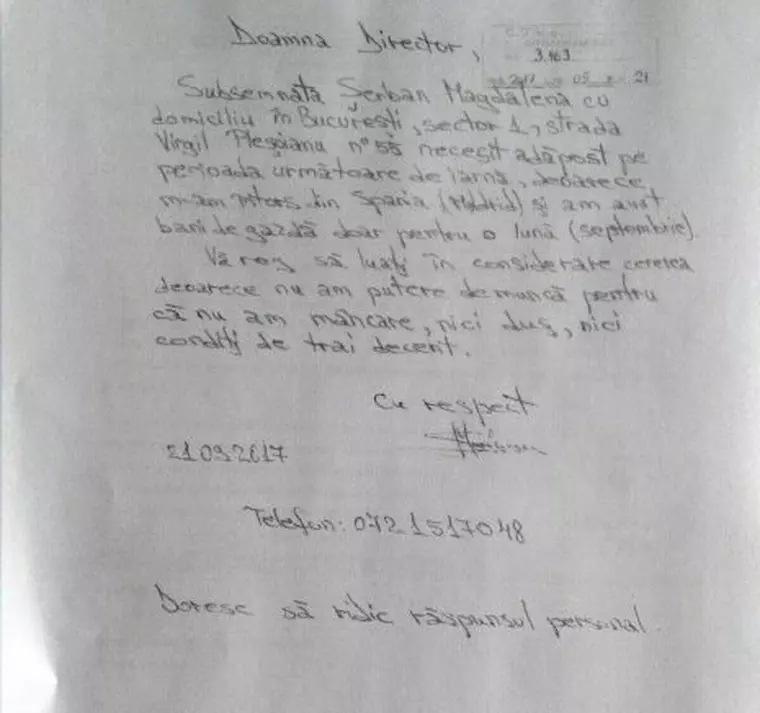 Doamna Director,
3.163
2017 09 21
Subsemnata Șerban Magdalena cu
domiciliu în București, sector 1, strada
Virgil Pleșoianu nº 55 necesit adăpost pe
perioada următoare de iarnă, deoarece
m-am întors din Spania (Madrid) și am avut
bani de gazdă doar pentru o lună (septembrie).
Vă rog să luați în considerare cererea
deoarece nu am putere de muncă pentru
că nu am mâncare, nici duș, nici
condiții de trai decent.
Cu respect
21 09 2017
Telefon: 0721517048
Doresc să ridic răspunsul personal.